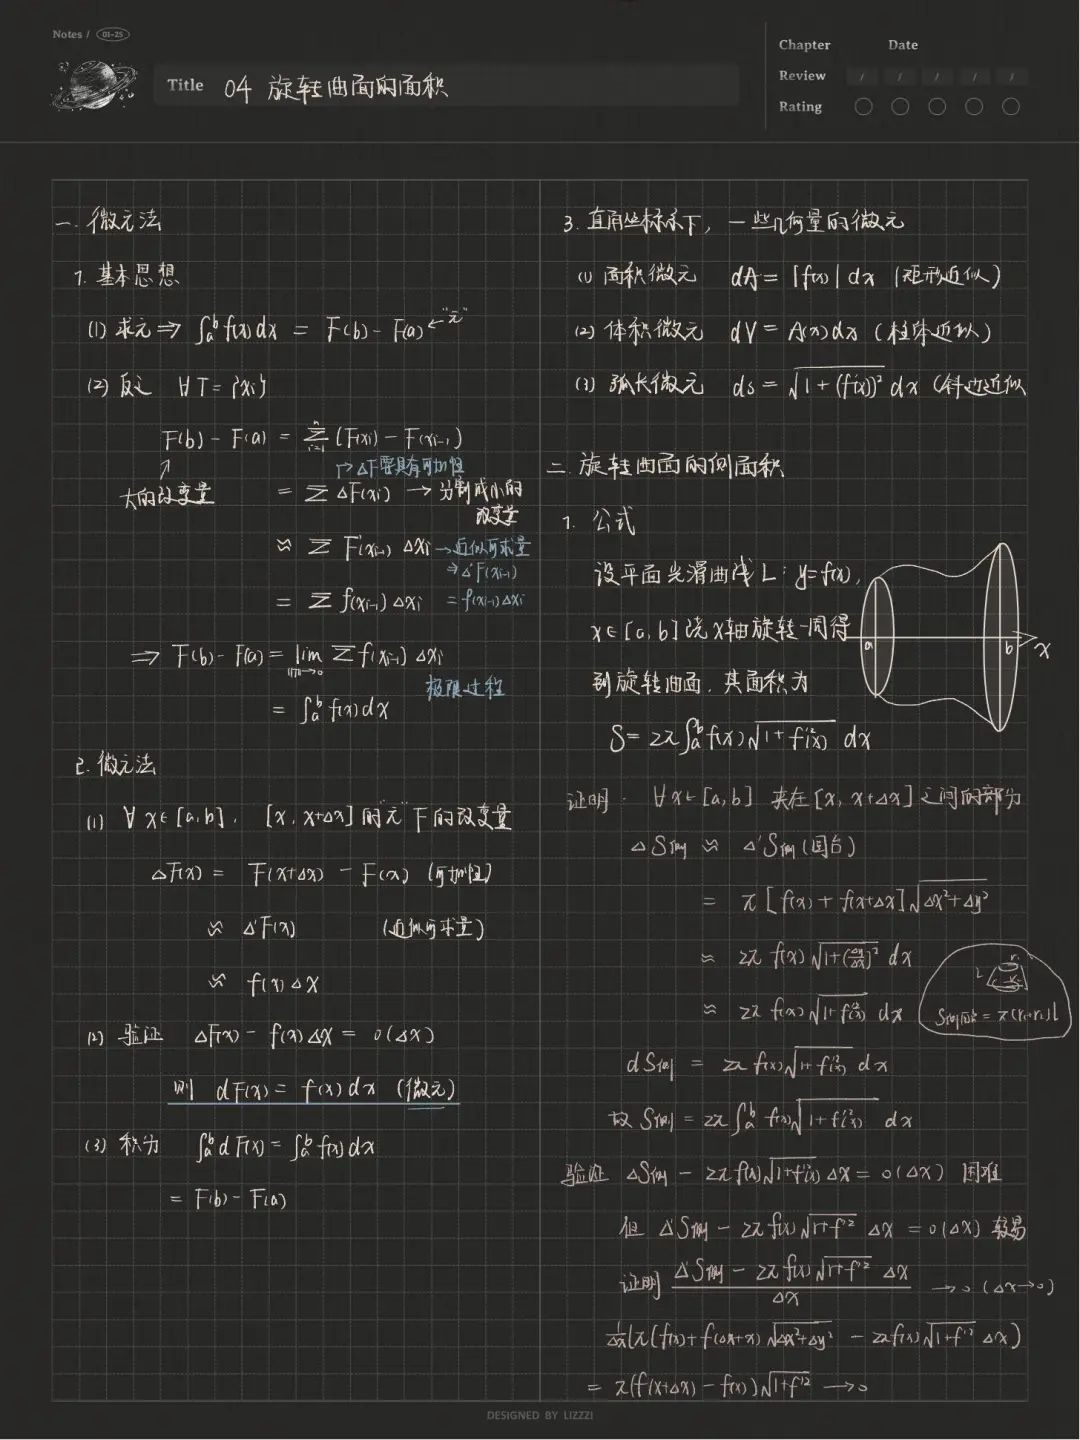 Notes / 01-25
Title 04 旋转曲面的面积
Chapter Date
Review / / / / /
Rating
一. 微元法
1. 基本思想
(1) 求元 ⇒ ∫ₐᵇ f(x)dx = F(b) - F(a) ← "元"
(2) 反之 ∀T = {xᵢ}
F(b) - F(a) = Σⁿᵢ₌₁ (F(xᵢ) - F(xᵢ₋₁)
↗ 大的改变量
→ ΔF要具有可加性
= Σ ΔF(xᵢ) → 分割成小的改变量
≈ Σ F'(xᵢ₋₁) Δxᵢ → 近似可求量
⇒ Δ'F(xᵢ₋₁)
= Σ f(xᵢ₋₁) Δxᵢ = f(xᵢ₋₁) Δxᵢ
⇒ F(b) - F(a) = lim ‖T‖→0 Σ f(xᵢ₋₁) Δxᵢ
极限过程
= ∫ₐᵇ f(x) dx
2. 微元法
(1) ∀ x∈[a,b], [x, x+Δx] 的"元"下的改变量
ΔF(x) = F(x+Δx) - F(x) (可加性)
≈ Δ'F(x) (近似可求量)
≈ f(x) Δx
(2) 验证 ΔF(x) - f(x) Δx = o(Δx)
则 dF(x) = f(x) dx (微元)
(3) 积分 ∫ₐᵇ dF(x) = ∫ₐᵇ f(x) dx
= F(b) - F(a)
3. 直角坐标系下, 一些几何量的微元
(1) 面积微元 dA = |f(x)| dx (矩形近似)
(2) 体积微元 dV = A(x) dx (柱体近似)
(3) 弧长微元 ds = √(1 + (f'(x))²) dx (斜边近似
二. 旋转曲面的侧面积
1. 公式
设平面光滑曲线 L: y = f(x),
x∈[a, b] 绕 x轴旋转一周得
到旋转曲面, 其面积为
a b x
S = 2π ∫ₐᵇ f(x) √(1 + f'²(x)) dx
证明. ∀ x∈[a, b] 夹在 [x, x+Δx] 之间的部分
ΔS侧 ≈ Δ'S侧 (圆台)
= π [f(x) + f(x+Δx)] √(Δx² + Δy²)
≈ 2π f(x) √(1 + (Δy/Δx)²) dx
≈ 2π f(x) √(1 + f'²(x)) dx
L r₁ r₂
S侧圆台 = π(r₁+r₂)L
dS侧 = 2π f(x) √(1 + f'²(x)) dx
故 S侧 = 2π ∫ₐᵇ f(x) √(1 + f'²(x)) dx
验证 ΔS侧 - 2π f(x) √(1 + f'²(x)) Δx = o(Δx) 困难
但 Δ'S侧 - 2π f(x) √(1 + f'²) Δx = o(Δx) 较易
证明 (Δ'S侧 - 2π f(x) √(1 + f'²) Δx) / Δx → 0 (Δx→0)
1/Δx (π(f(x) + f(Δx+x) √(Δx² + Δy²) - 2π f(x) √(1 + f'²) Δx)
= π(f(x+Δx) - f(x)) √(1 + f'²) → 0
DESIGNED BY LIZZZI